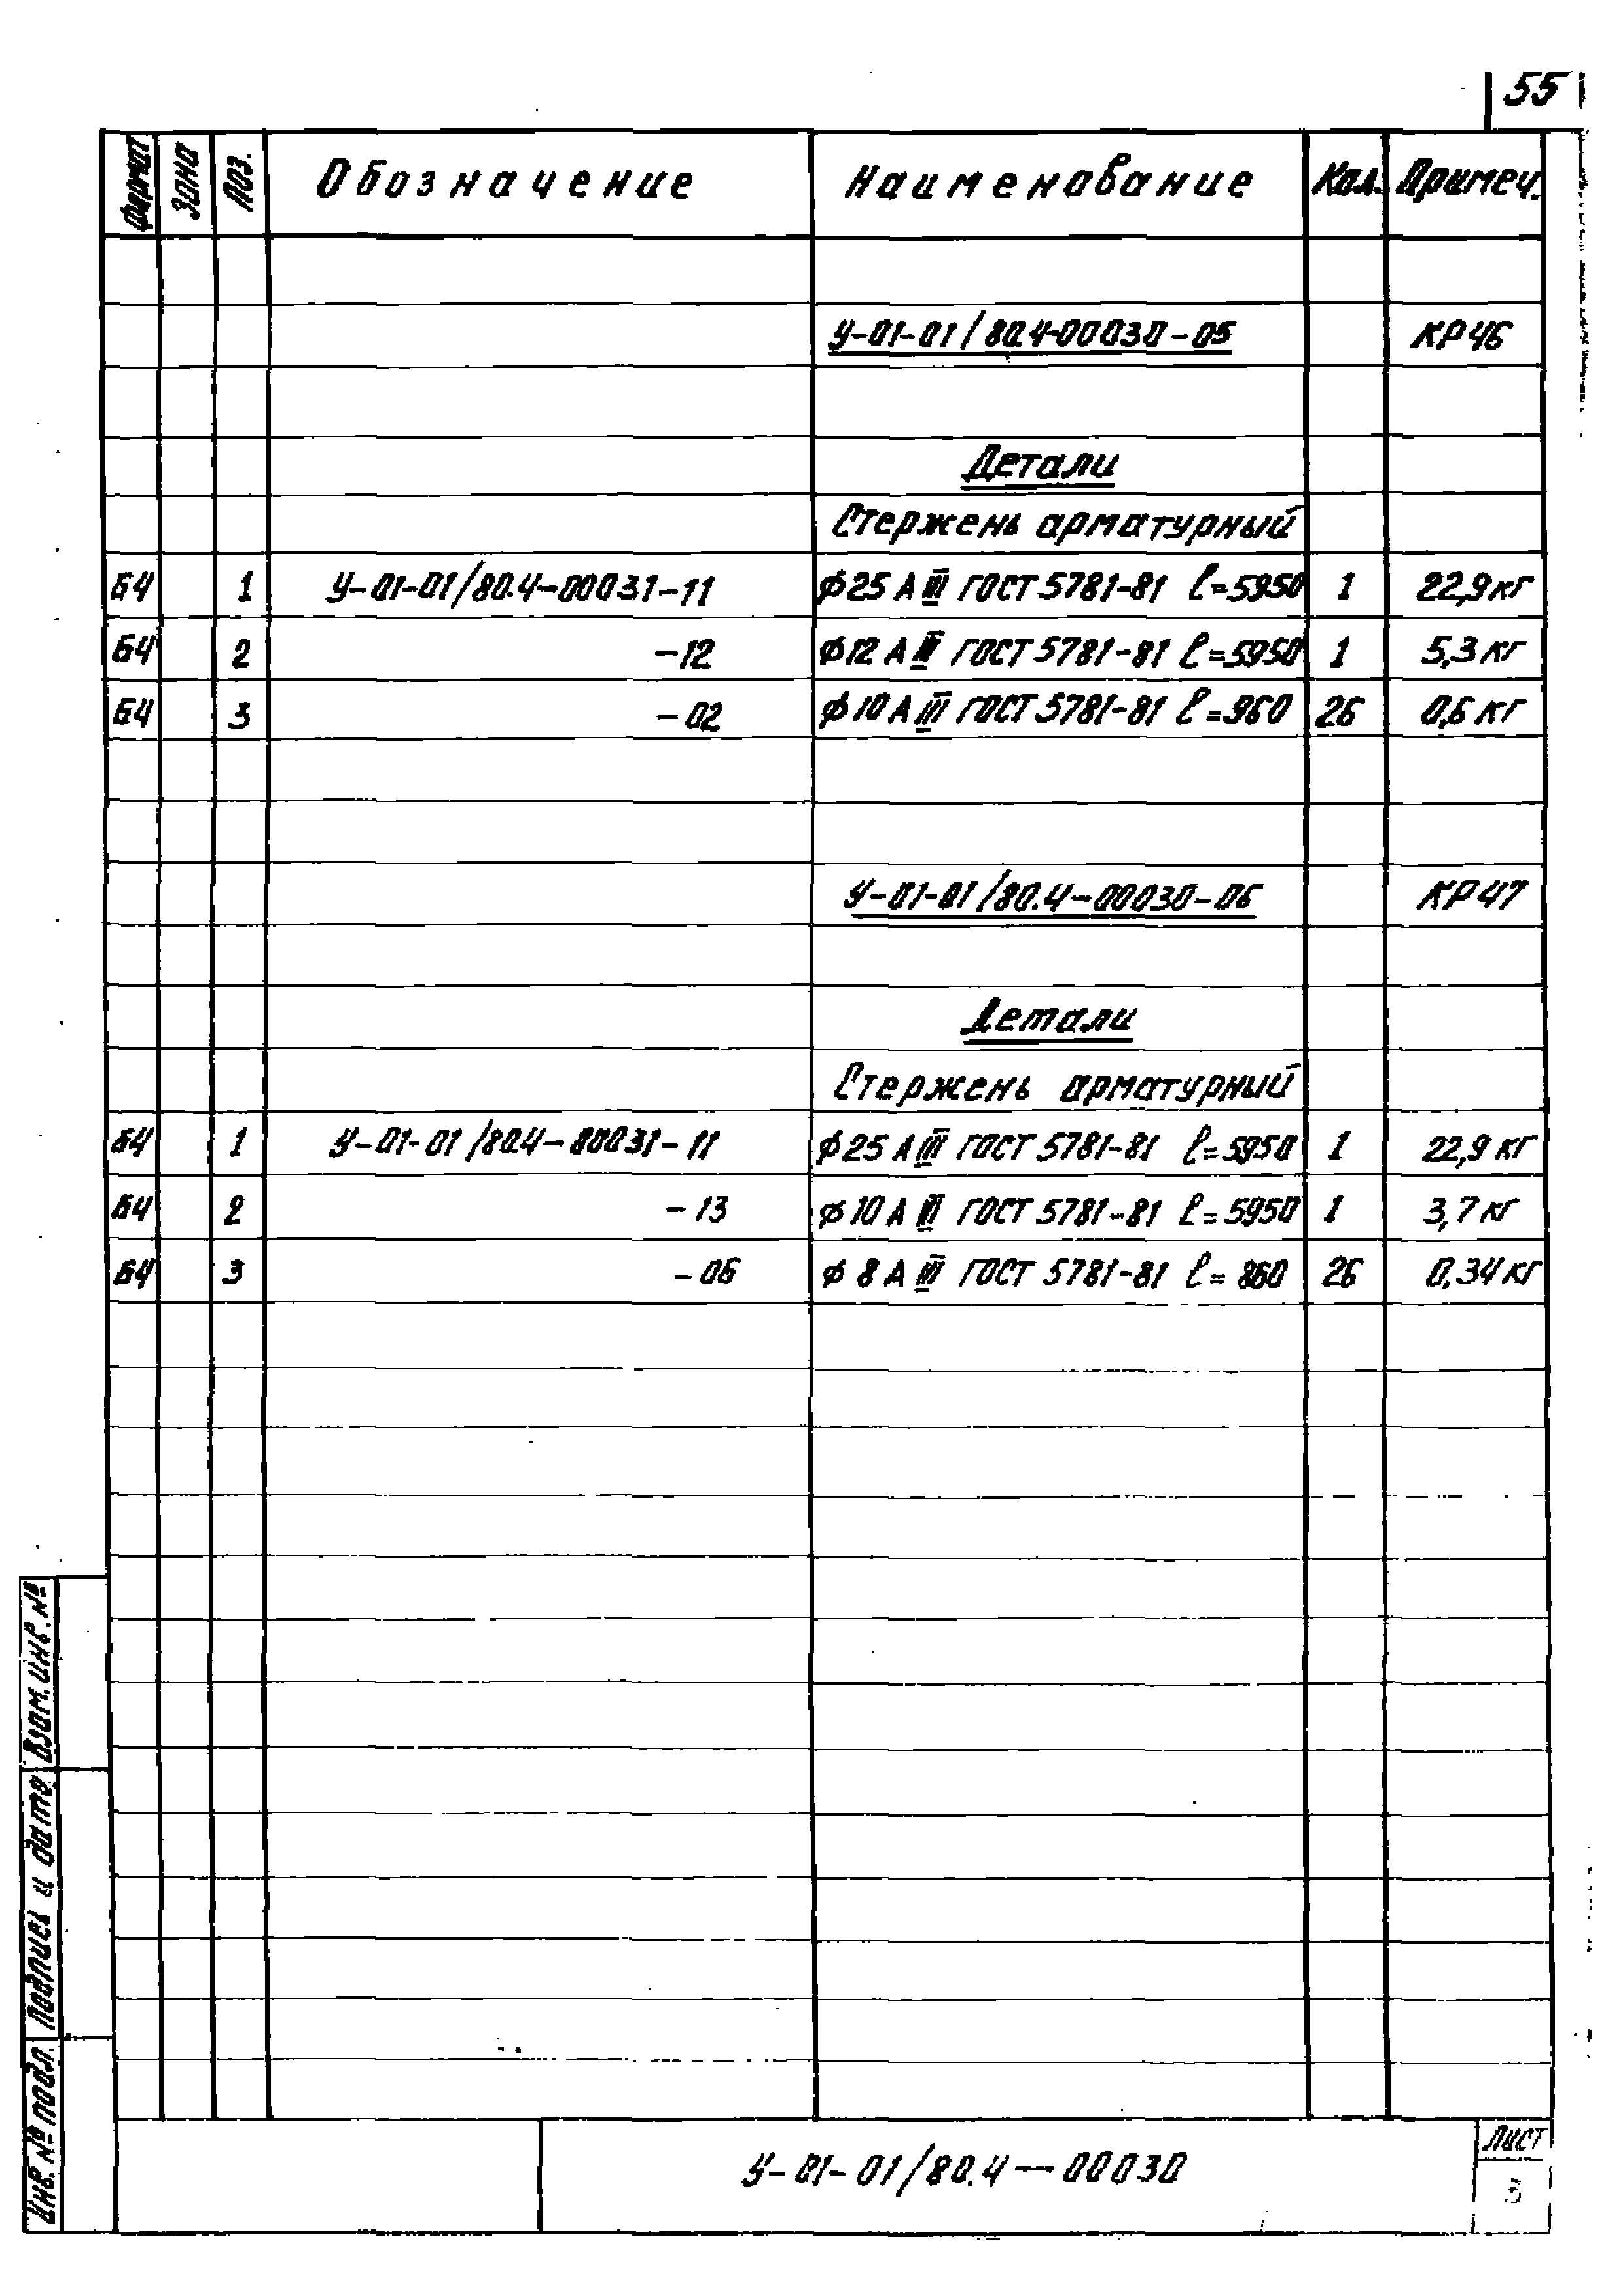 55
Формат Зона Поз. Обозначение Наименование Кол. Примеч.
У-01-01/80.4-00030-05 КР46
Детали
Стержень арматурный
БЧ 1 У-01-01/80.4-00031-11 ф25 А III ГОСТ 5781-81 ℓ=5950 1 22,9 кг
БЧ 2 -12 ф12 А III ГОСТ 5781-81 ℓ=5950 1 5,3 кг
БЧ 3 -02 ф10 А III ГОСТ 5781-81 ℓ=960 26 0,6 кг
У-01-01/80.4-00030-06 КР47
Детали
Стержень арматурный
БЧ 1 У-01-01/80.4-00031-11 ф25 А III ГОСТ 5781-81 ℓ=5950 1 22,9 кг
БЧ 2 -13 ф10 А III ГОСТ 5781-81 ℓ=5950 1 3,7 кг
БЧ 3 -06 ф 8 А III ГОСТ 5781-81 ℓ=860 26 0,34 кг
Взам. инв. №
Подпись и дата
Инв. № подл.
У-01-01/80.4-00030
Лист
3